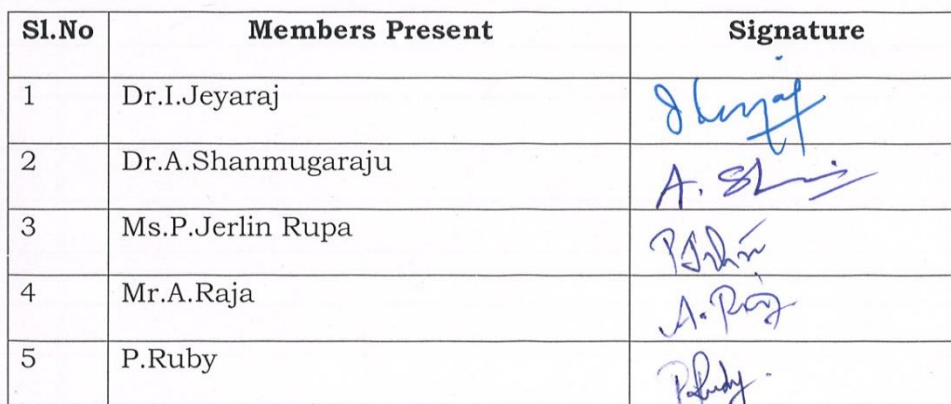 Sl.No Members Present Signature
1 Dr.I.Jeyaraj
2 Dr.A.Shanmugaraju A. Sh
3 Ms.P.Jerlin Rupa P Jerlin
4 Mr.A.Raja A. Raja
5 P.Ruby P.Ruby.